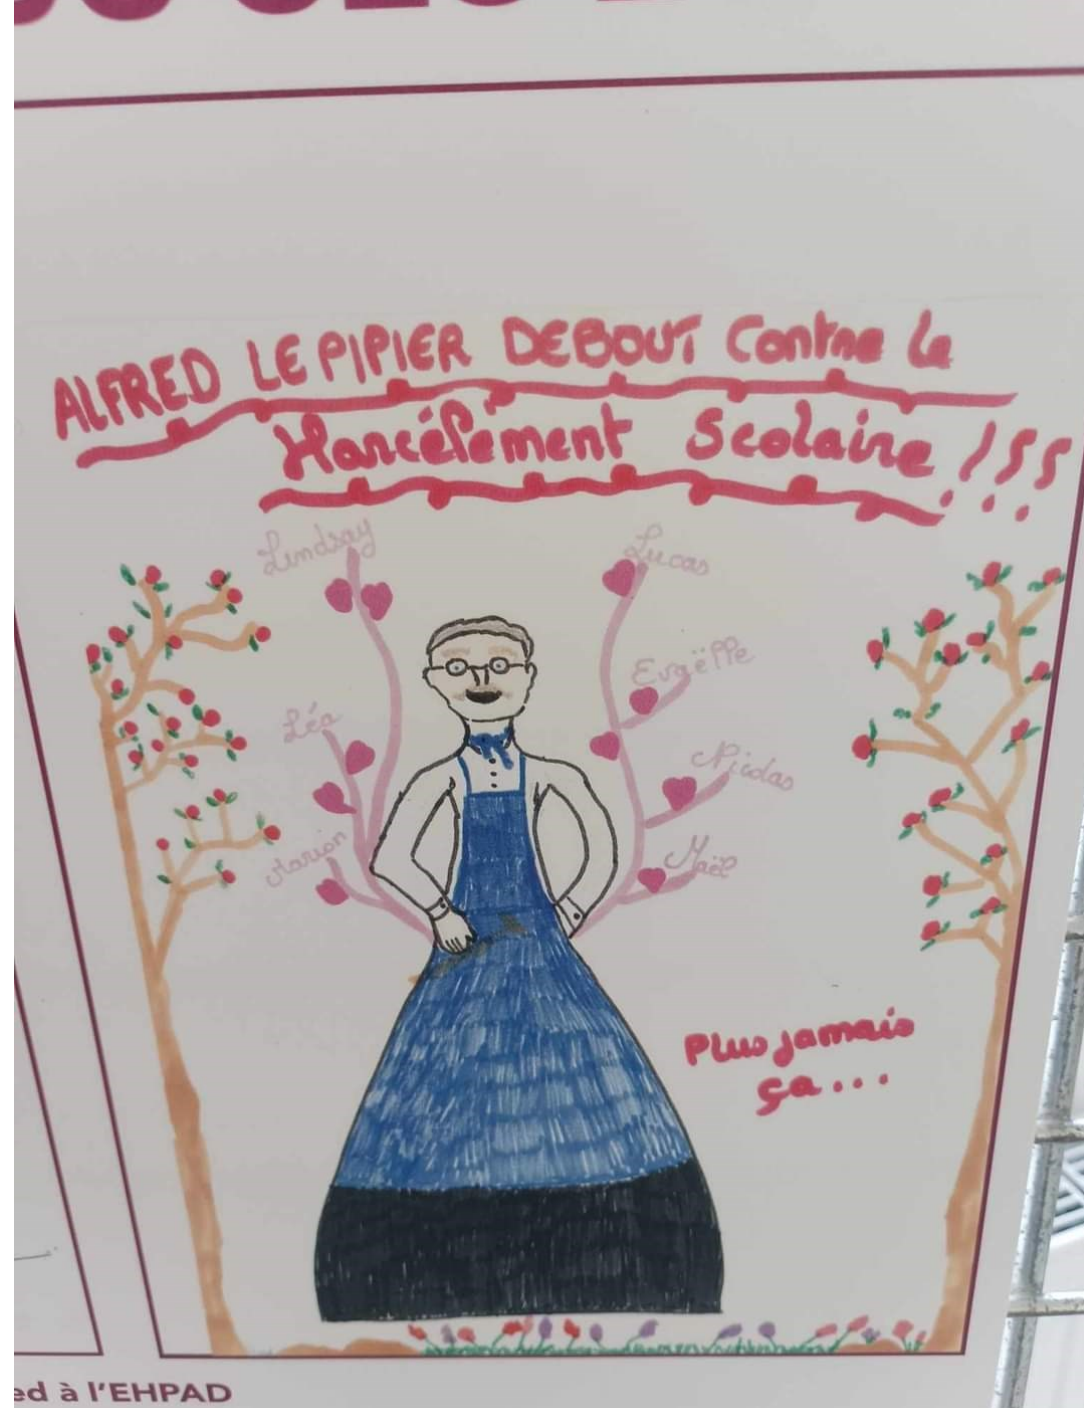 ALFRED LE PIPIER DEBOUT Contre le
Harcélement Scolaire !!!
Lindsay
Lucas
Evaëlle
Léa
Nicolas
Marion
Maël
Plus jamais
ça...
ed à l'EHPAD